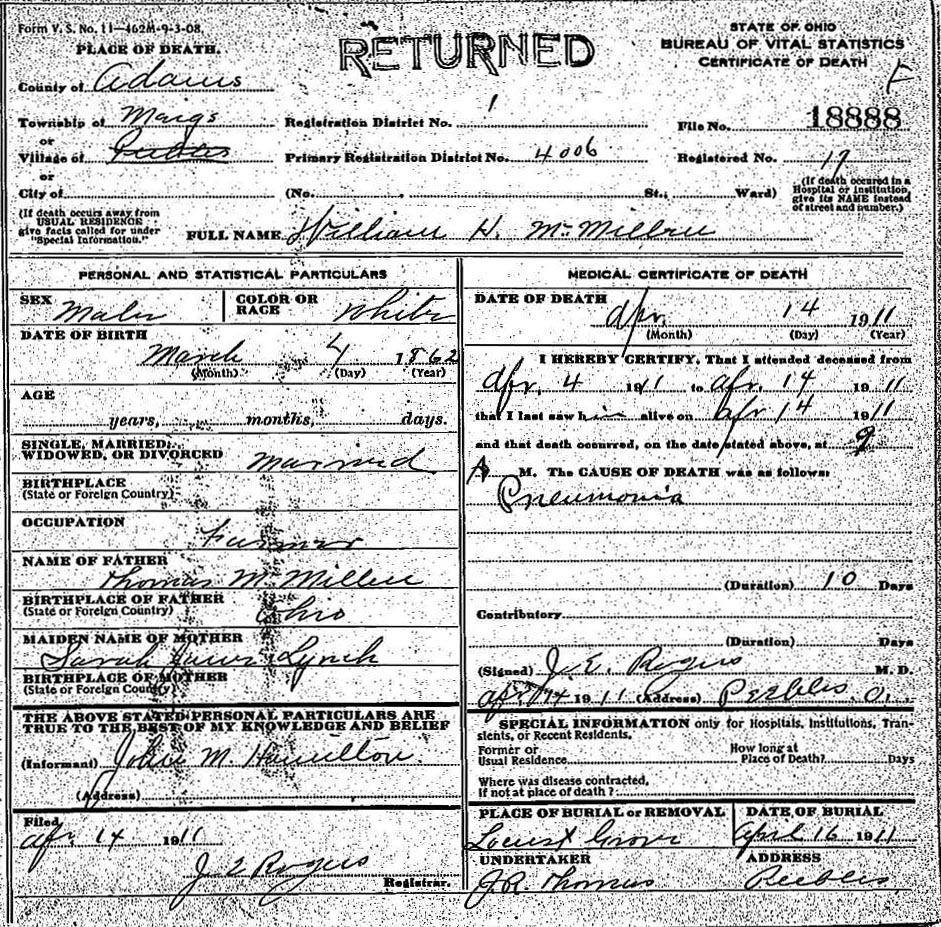 Form V. S. No. 11—462M-9-3-08.
RETURNED
STATE OF OHIO
BUREAU OF VITAL STATISTICS
CERTIFICATE OF DEATH
PLACE OF DEATH.
County of Adams
Township of Meigs
Registration District No. 1
File No. 18888
or
Village of Peebles
Primary Registration District No. 4006
Registered No. 19
or
City of
(No. , St.; Ward)
(If death occured in a Hospital or Institution, give its NAME instead of street and number.)
(If death occurs away from USUAL RESIDENCE give facts called for under "Special Information.")
FULL NAME William H. McMillen
PERSONAL AND STATISTICAL PARTICULARS
SEX Male
COLOR OR RACE White
DATE OF BIRTH
March 4 1862
(Month) (Day) (Year)
AGE
years, months, days.
SINGLE, MARRIED, WIDOWED, OR DIVORCED Married
BIRTHPLACE
(State or Foreign Country)
OCCUPATION
Farmer
NAME OF FATHER
Thomas McMillen
BIRTHPLACE OF FATHER
(State or Foreign Country) Ohio
MAIDEN NAME OF MOTHER
Sarah Lynch
BIRTHPLACE OF MOTHER
(State or Foreign Country)
THE ABOVE STATED PERSONAL PARTICULARS ARE
TRUE TO THE BEST OF MY KNOWLEDGE AND BELIEF
(Informant) John M. Hamilton
(Address)
Filed
Apr. 14 1911
J E Rogers
Registrar.
MEDICAL CERTIFICATE OF DEATH
DATE OF DEATH
Apr 14 1911
(Month) (Day) (Year)
I HEREBY CERTIFY, That I attended deceased from
Apr. 4 1911 to Apr. 14 1911
that I last saw him alive on Apr 14 1911
and that death occurred, on the date stated above, at 9
A M. The CAUSE OF DEATH was as follows:
Pneumonia
(Duration) 10 Days
Contributory
(Duration) Days
(Signed) J. E. Rogers M. D.
Apr 14 1911 (Address) Peebles O.
SPECIAL INFORMATION only for Hospitals, Institutions, Transients, or Recent Residents.
Former or
Usual Residence
How long at
Place of Death? Days
Where was disease contracted,
If not at place of death?
PLACE OF BURIAL or REMOVAL
Locust Grove
DATE OF BURIAL
April 16 1911
UNDERTAKER
J R Thomas
ADDRESS
Peebles